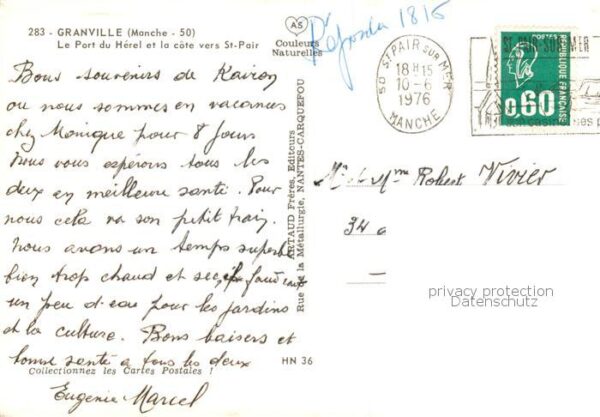 283 - GRANVILLE (Manche - 50)
Le Port du Hérel et la côte vers St-Pair
AS
Couleurs
Naturelles
Répondu 1815
50 ST PAIR SUR MER
18 H 15
10-6
1976
MANCHE
ST-PAIR-SUR-MER
son casino ses p
POSTES
REPUBLIQUE FRANÇAISE
0,60
Bons souvenirs de Kairon
ou nous sommes en vacances
chez Monique pour 8 Jours
Nous vous espérons tous les
deux en meilleure santé. Pour
nous cela va son petit train.
nous avons un temps superbe
bien trop chaud et sec, il faudrait
un peu d'eau pour les jardins
et la culture. Bons baisers et
bonne santé a tous les deux
Eugénie Marcel
Collectionnez les Cartes Postales !
HN 36
ARTAUD Frères, Editeurs
Rue de la Métallurgie, NANTES-CARQUEFOU
Mr et Mme Robert Vivier
34 a
privacy protection
Datenschutz